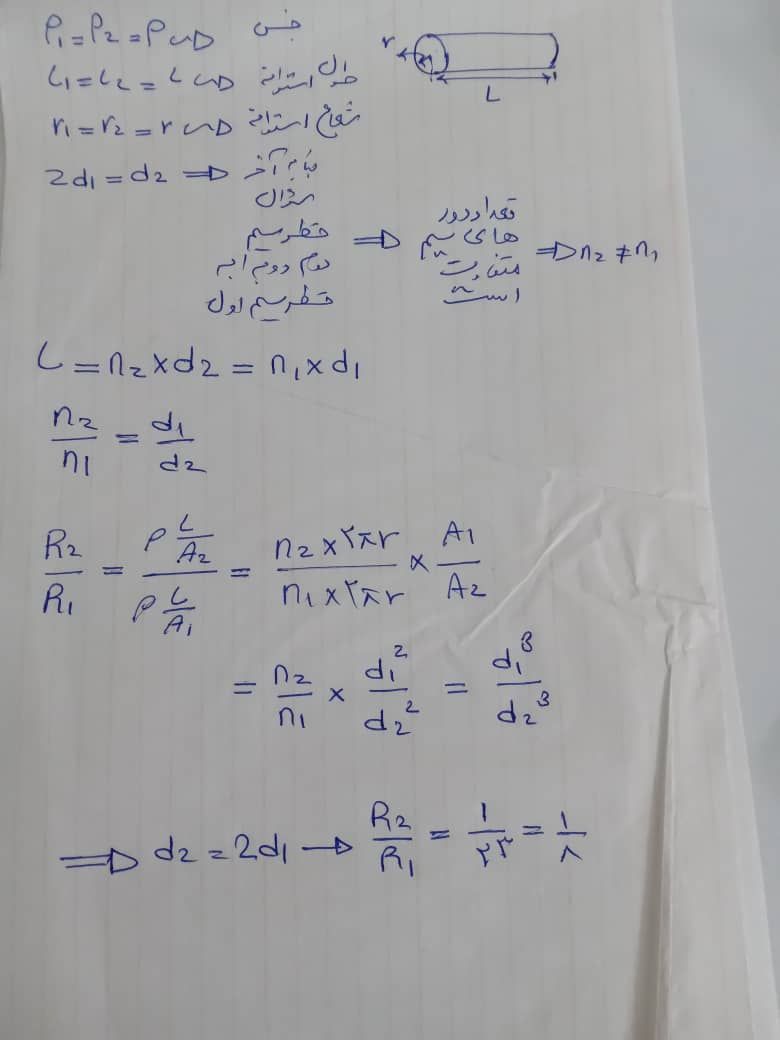 ρ₁ = ρ₂ = ρ ⇒ جنس
L₁ = L₂ = L ⇒ طول استوانه
r₁ = r₂ = r ⇒ شعاع استوانه
r
L
2d₁ = d₂ ⇒ بنا به آخر
سوال
قطر سیم
دوم دو برابر
قطر سیم اول
⇒ تعداد دور
های سیم
متفاوت
است
⇒ n₂ ≠ n₁
L = n₂ × d₂ = n₁ × d₁
n₂/n₁ = d₁/d₂
R₂/R₁ = (ρ L/A₂)/(ρ L/A₁) = (n₂ × ۲πr)/(n₁ × ۲πr) × A₁/A₂
= n₂/n₁ × d₁²/d₂² = d₁³/d₂³
⇒ d₂ = 2d₁ → R₂/R₁ = ۱/۲³ = ۱/۸